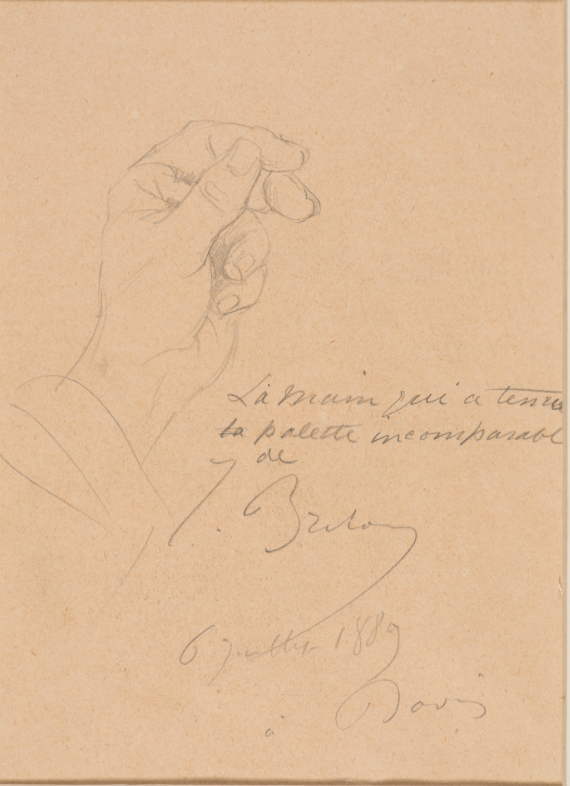 La main qui a tenu
la palette incomparabl
de
J. Breton
6 juillet 1889
Paris